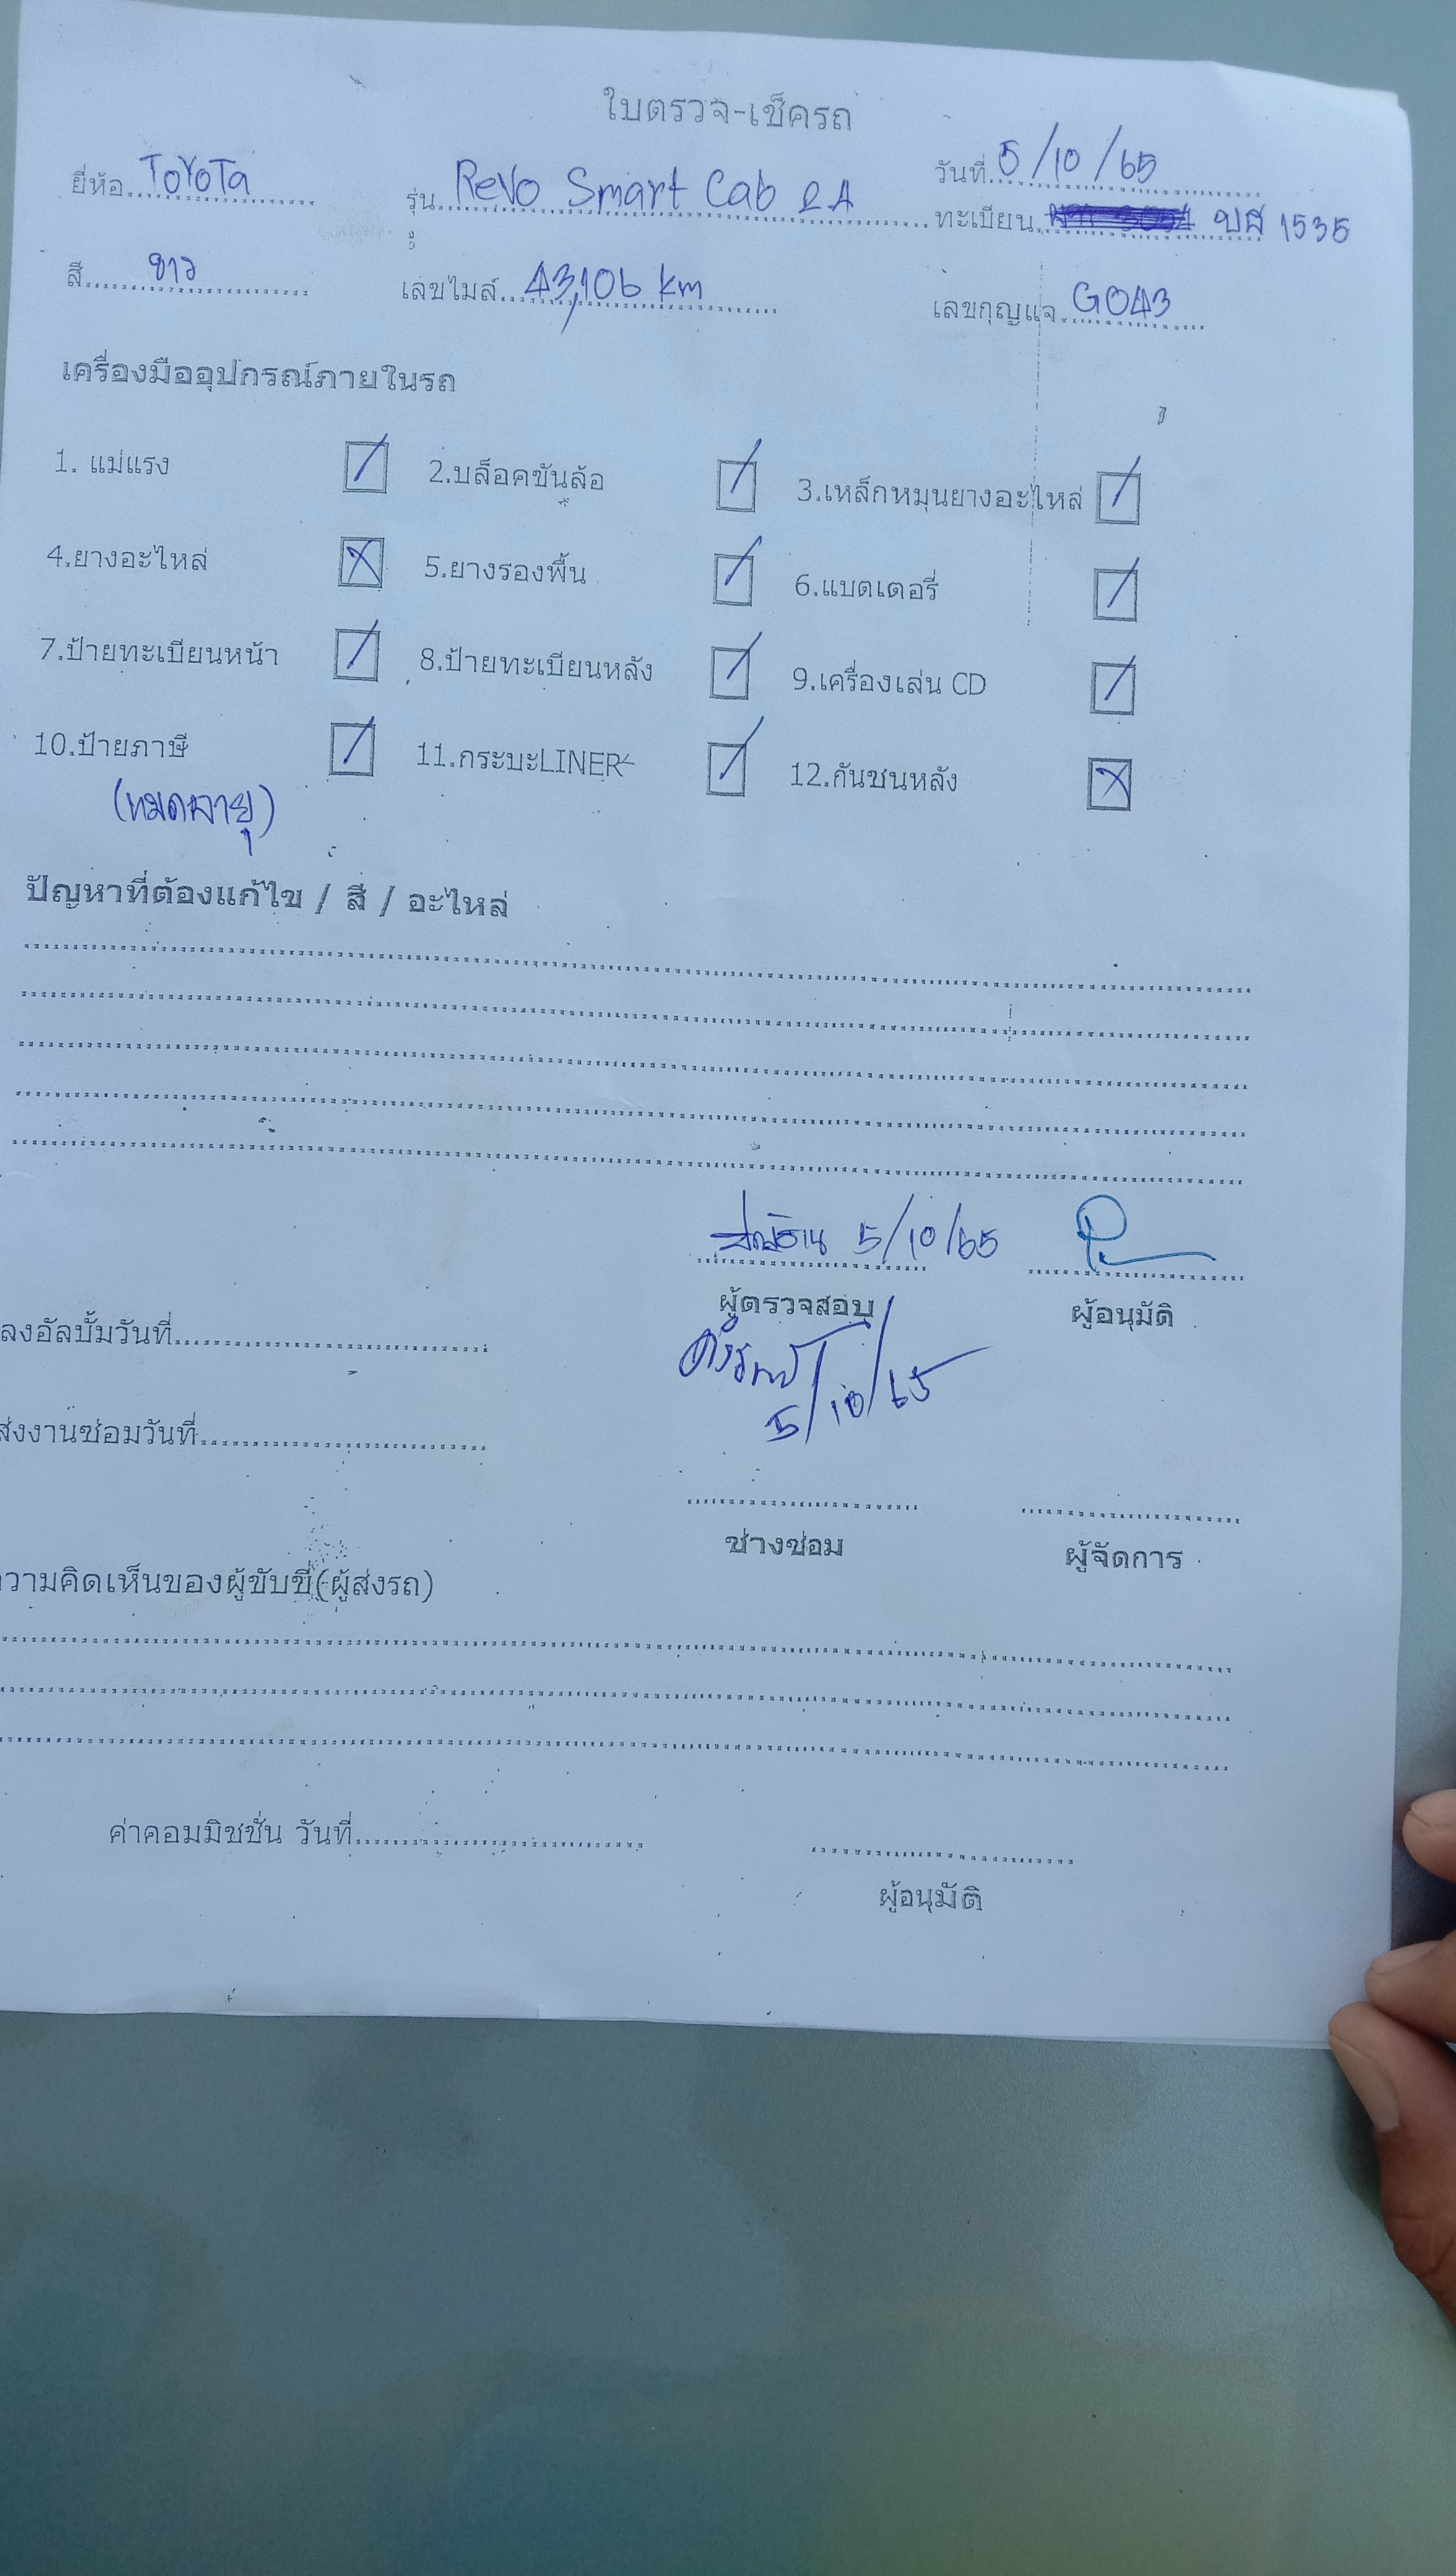 ใบตรวจ-เช็ครถ
ยี่ห้อ ToYoTa รุ่น Revo Smart Cab 2.4 วันที่ 5/10/65
ทะเบียน บส 1535
สี ขาว เลขไมล์ 43,106 km เลขกุญแจ G043
เครื่องมืออุปกรณ์ภายในรถ
1. แม่แรง / 2.บล็อคขันล้อ / 3.เหล็กหมุนยางอะไหล่ /
4.ยางอะไหล่ X 5.ยางรองพื้น / 6.แบตเตอรี่ /
7.ป้ายทะเบียนหน้า / 8.ป้ายทะเบียนหลัง / 9.เครื่องเล่น CD /
10.ป้ายภาษี / 11.กระบะLINER / 12.กันชนหลัง X
(หมดอายุ)
ปัญหาที่ต้องแก้ไข / สี / อะไหล่
5/10/65
ผู้ตรวจสอบ ผู้อนุมัติ
ลงอัลบั้มวันที่
5/10/65
ส่งงานซ่อมวันที่
ช่างซ่อม ผู้จัดการ
วามคิดเห็นของผู้ขับขี่(ผู้ส่งรถ)
ค่าคอมมิชชั่น วันที่
ผู้อนุมัติ